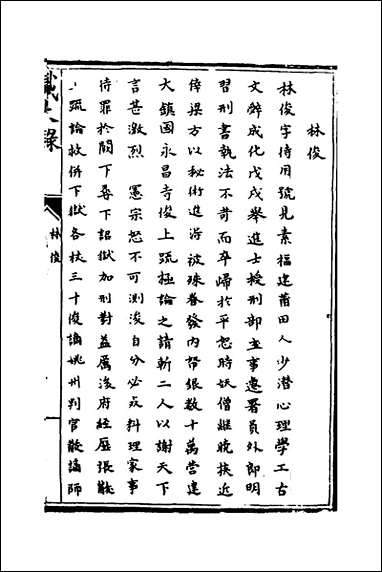 林俊
林俊字待用號見素福建莆田人少潛心理學工古
文辭成化戊戌舉進士授刑部主事遷署員外郎明
習刑書執法不苛而卒歸於平恕時妖僧繼曉挾近
倖梁方以秘術進得被殊眷發內帑銀数十萬營建
大鎮國永昌寺俊上疏極論之請斬二人以謝天下
言甚激烈 憲宗怒不可測浚自分必死料理家事
待罪於闕下尋下詔獄加刑對益厲浚府經歷張黻
上疏論救併下獄各杖三十俊謫姚州判官黻謫師
林俊